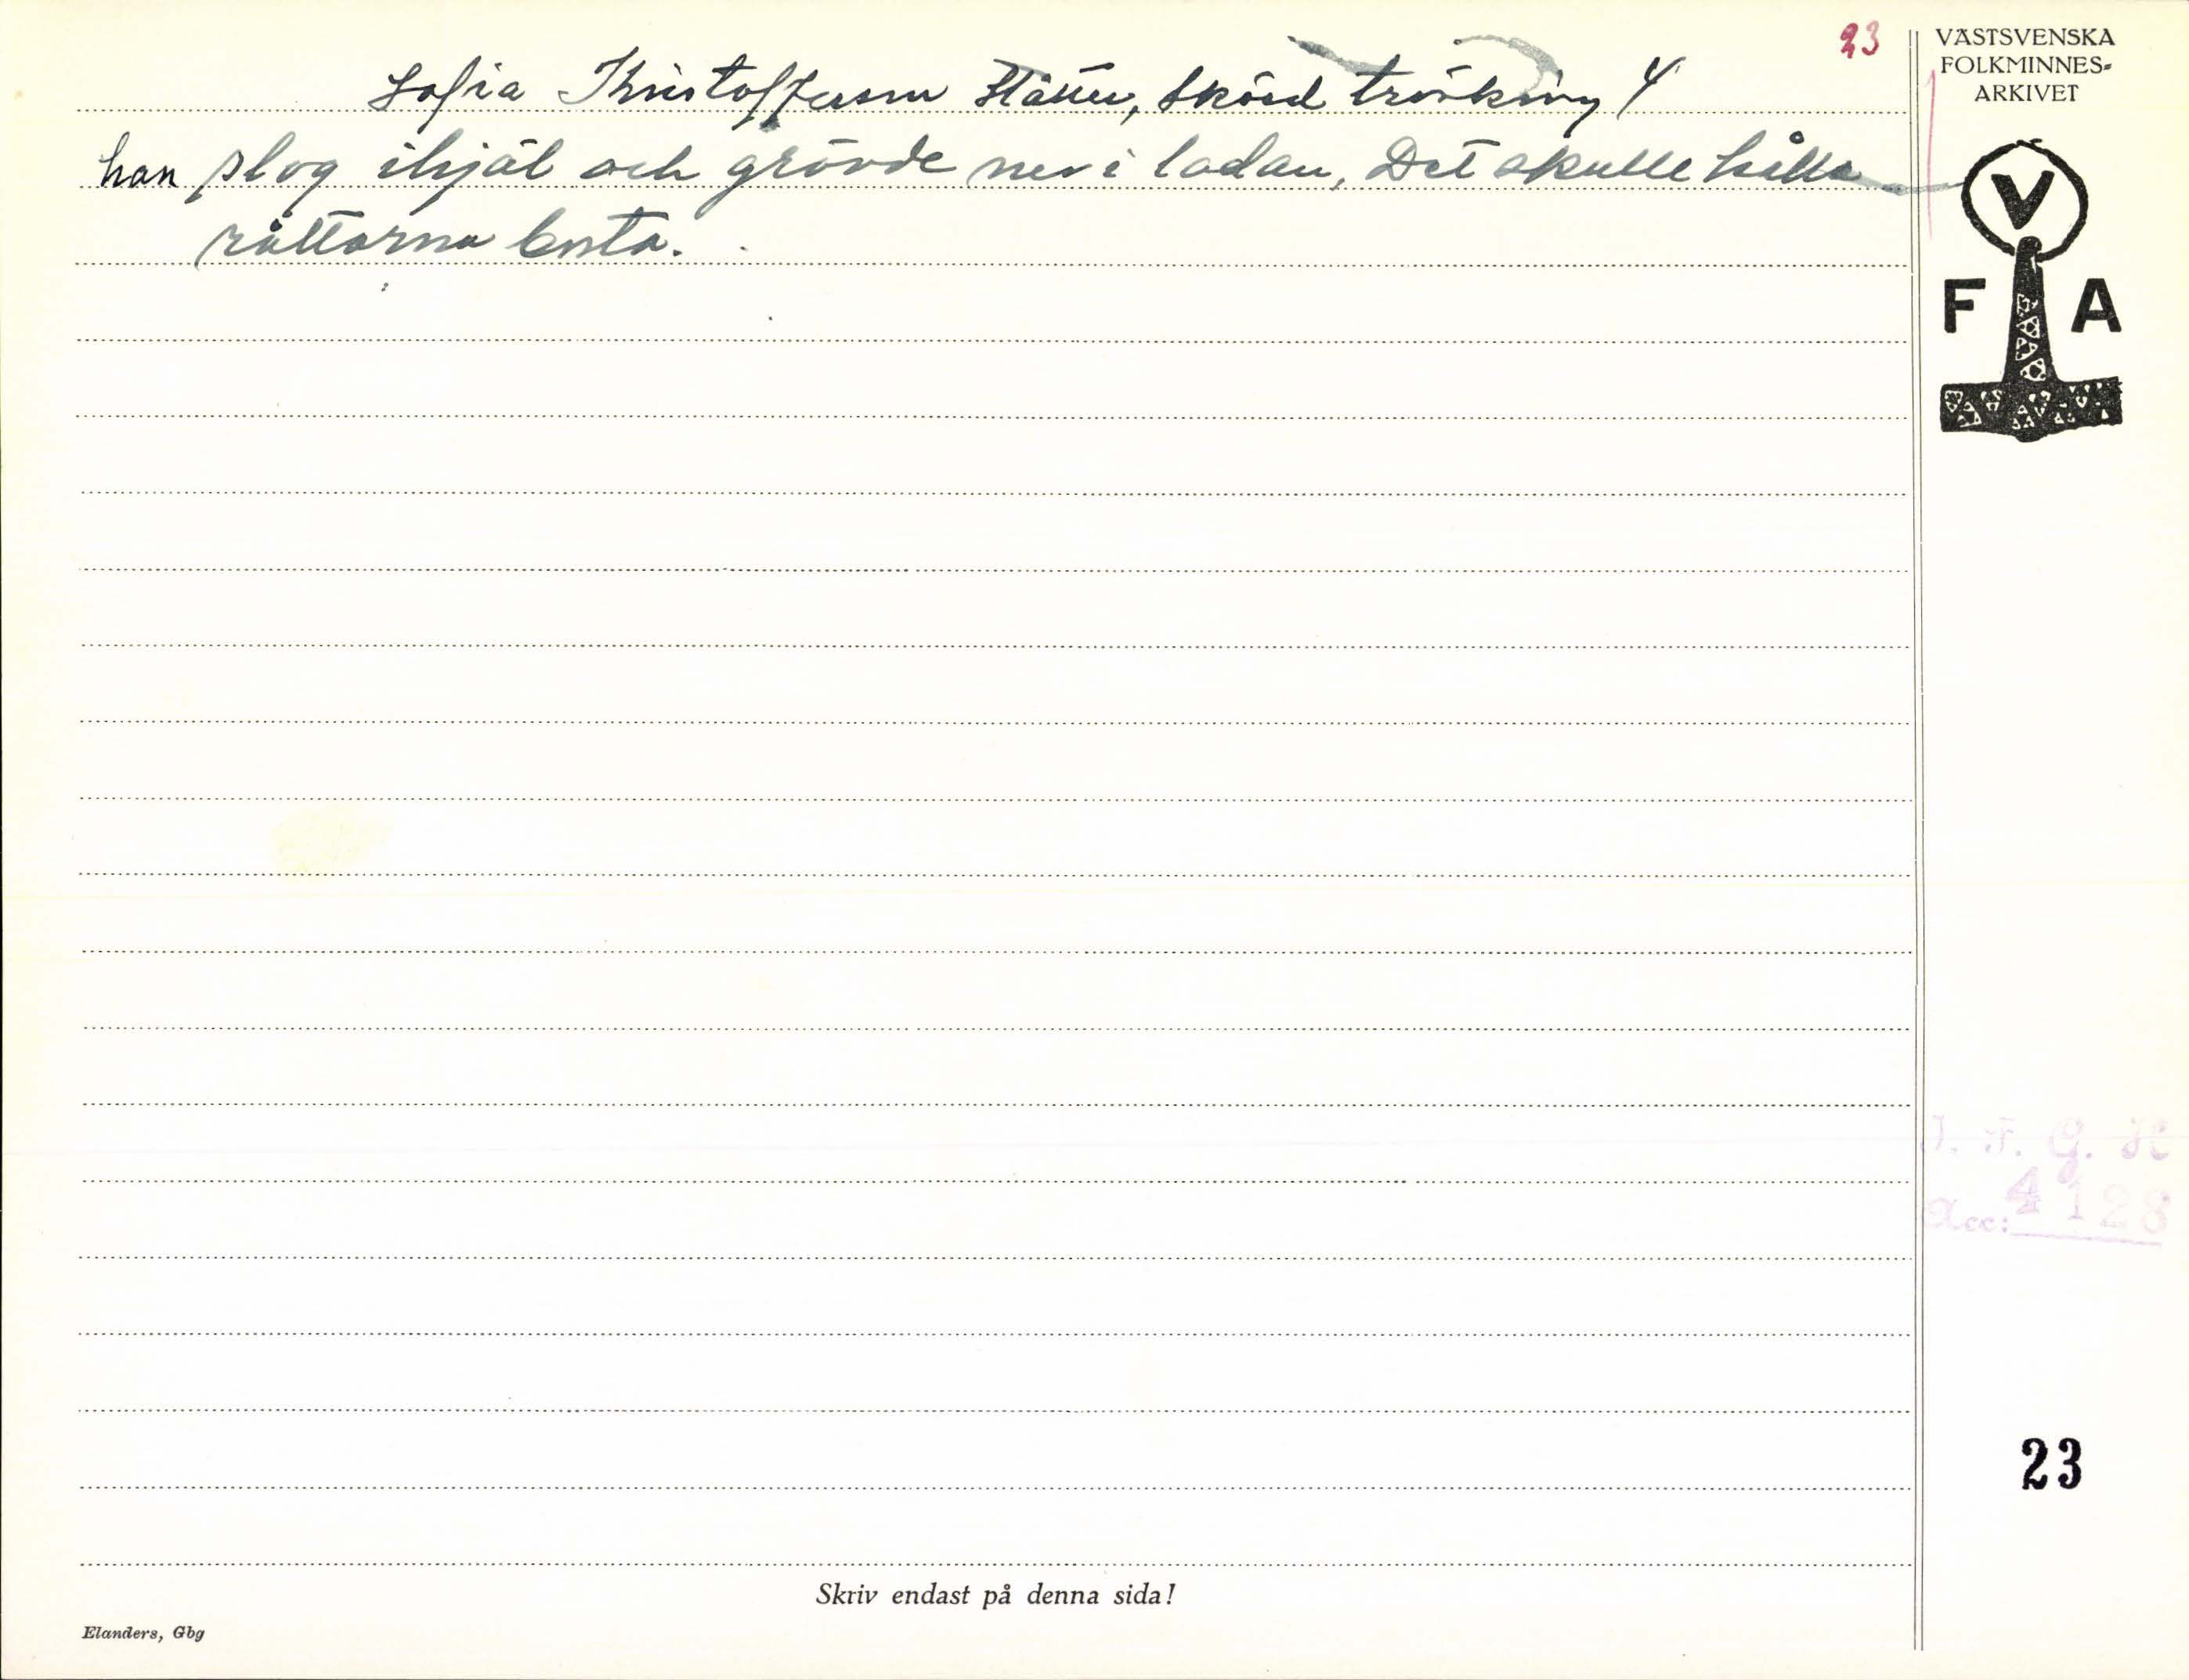 23
Sofia Kristoffersson Slåtter, Skörd tröskning 4
han slog ihjäl och grävde ner i ladan, Det skulle hålla
råttorna borta.
VÄSTSVENSKA
FOLKMINNES-
ARKIVET
V
F A
I. F. G. H
Acc: 4128
23
Skriv endast på denna sida!
Elanders, Gbg